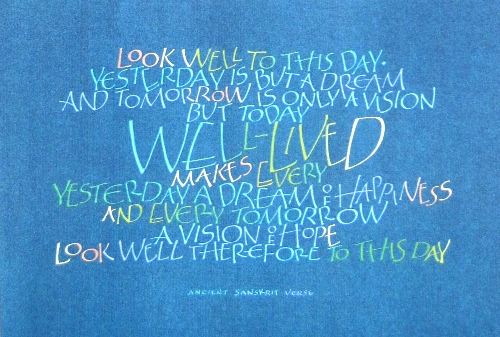 LOOK WELL TO THIS DAY.
YESTERDAY IS BUT A DREAM
AND TOMORROW IS ONLY A VISION
BUT TODAY
WELL-LIVED
MAKES EVERY
YESTERDAY A DREAM OF HAPPINESS
AND EVERY TOMORROW
A VISION OF HOPE
LOOK WELL THEREFORE TO THIS DAY
ANCIENT SANSKRIT VERSE